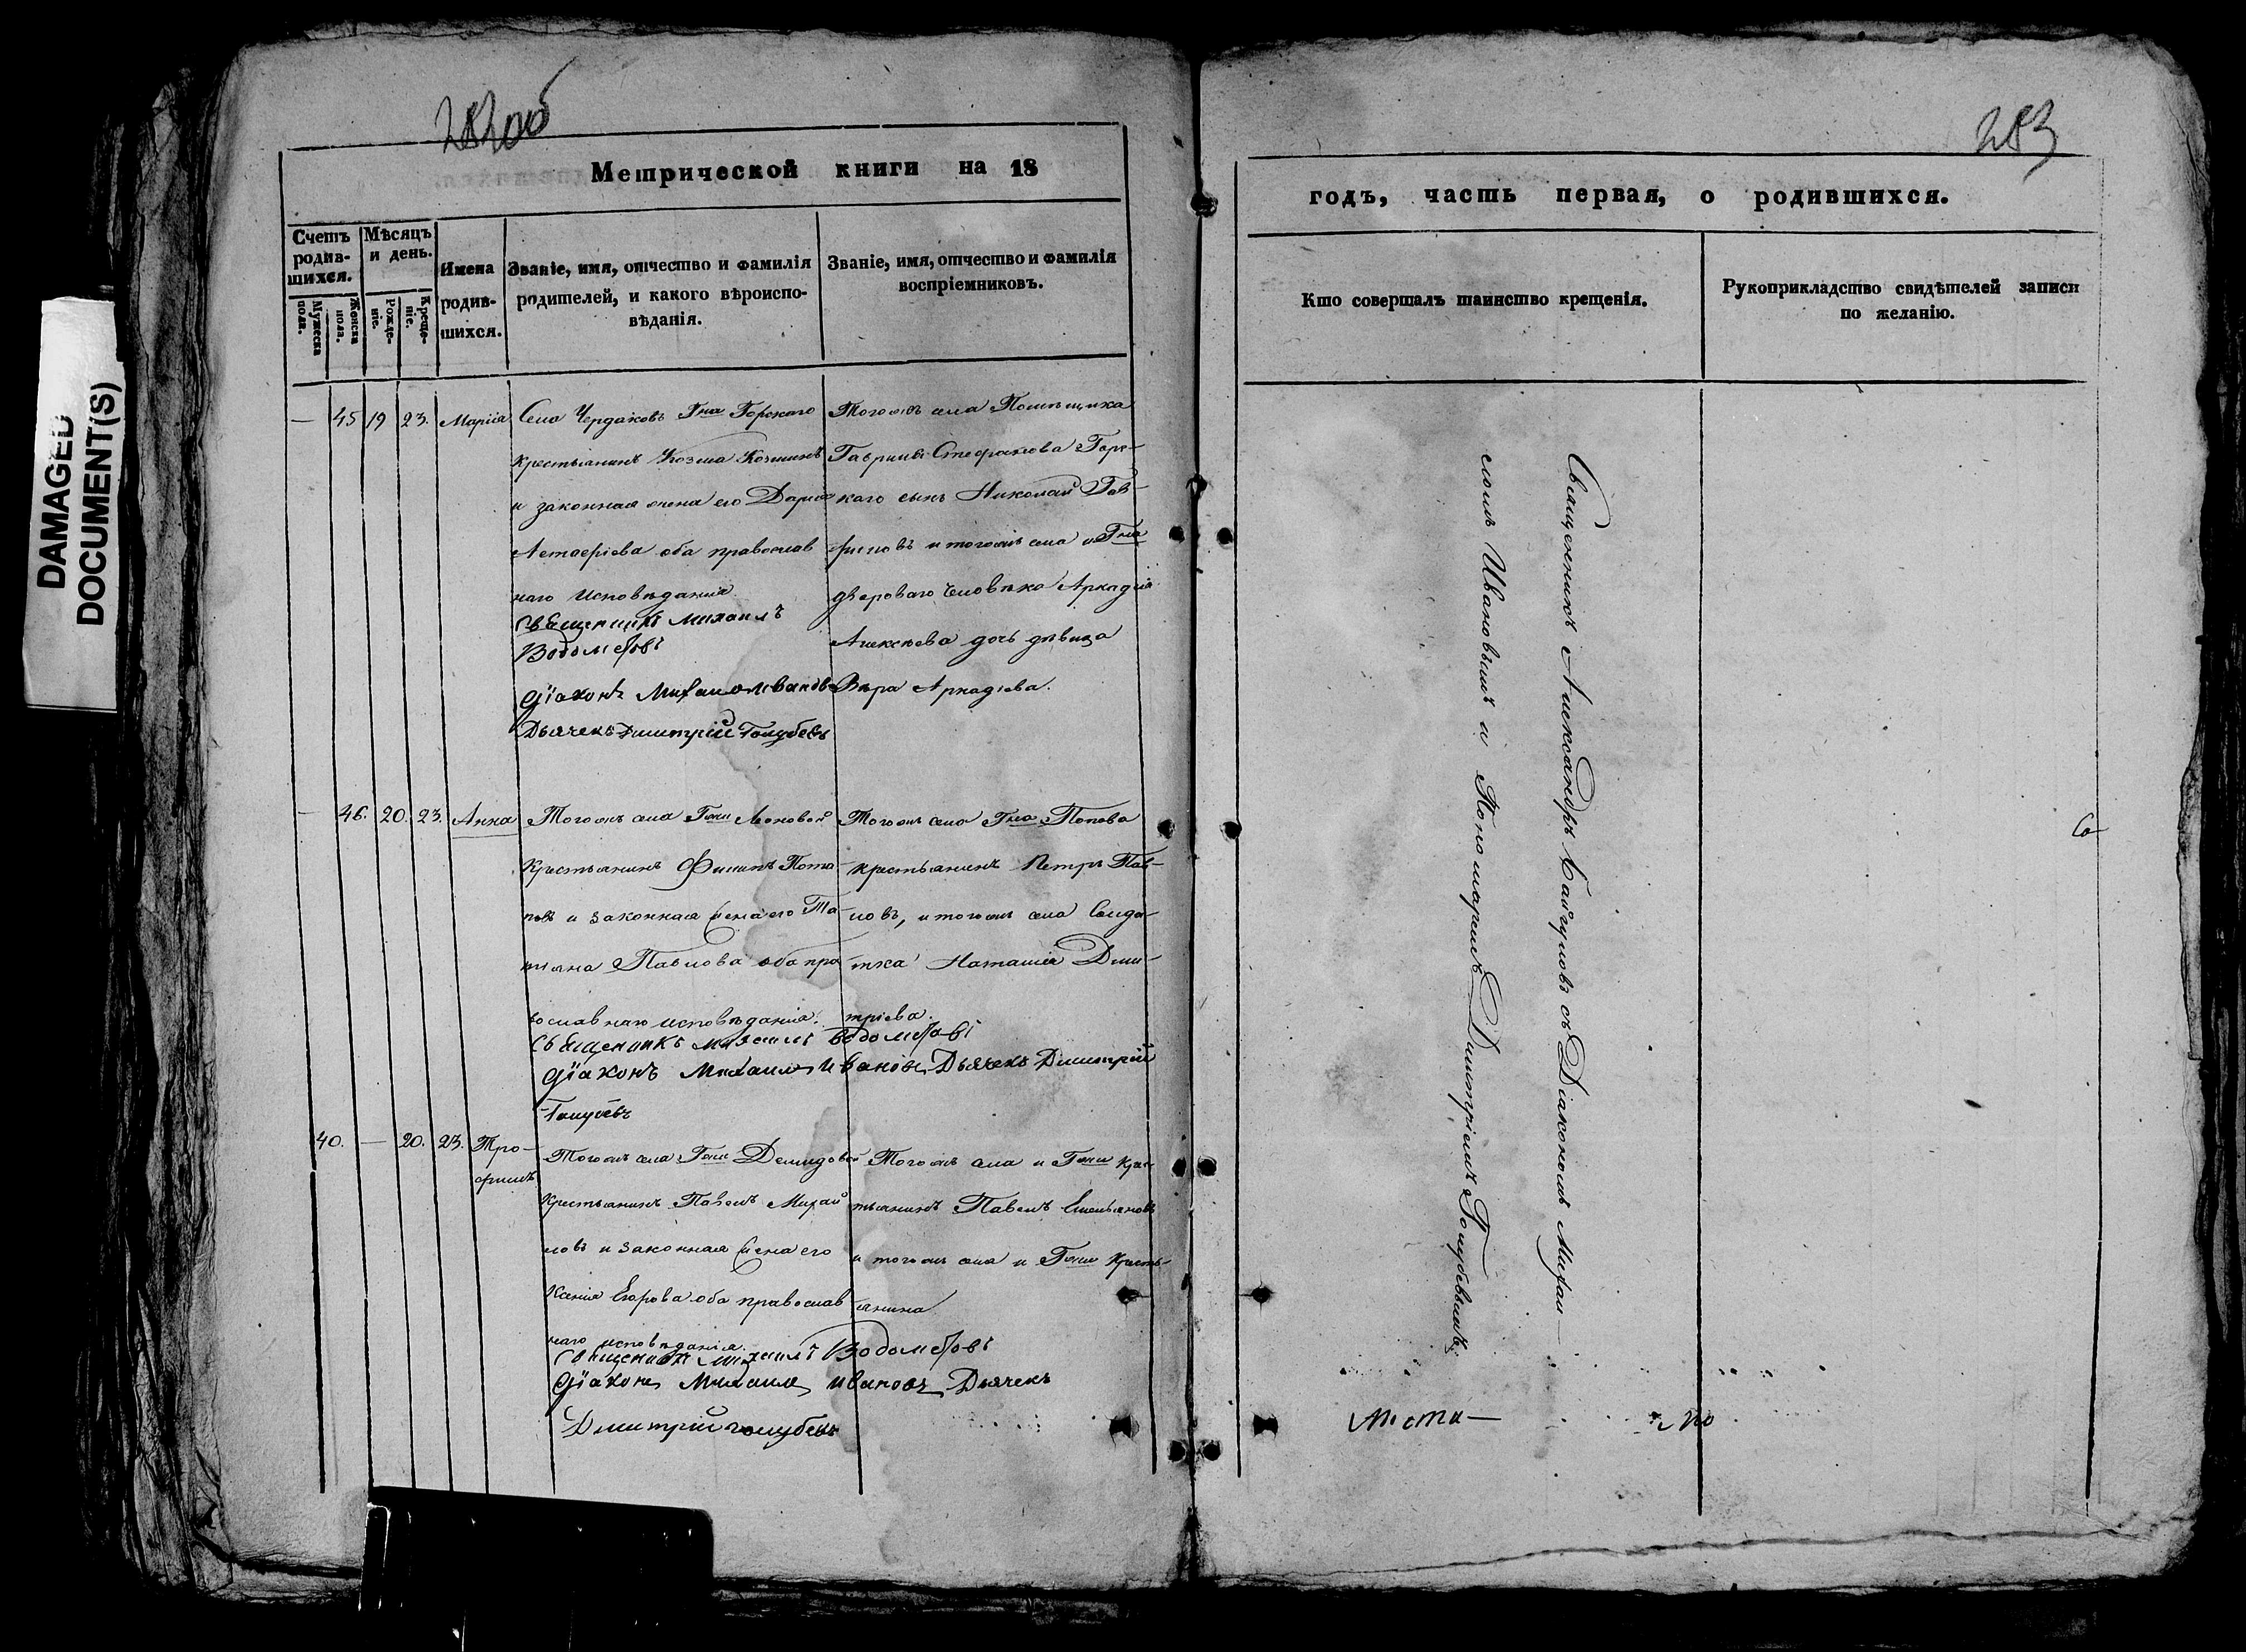 282об
Метрической книги на 18
Счетъ родив-шихся.
Мѣсяцъ и день.
Мужеска пола.
Женска пола.
Рожде-ніе.
Креще-ніе.
Имена
родив-
шихся.
Званіе, имя, отчество и фамилія
родителей, и какого вѣроиспо-
вѣданія.
Званіе, имя, отчество и фамилія
воспріемниковъ.
— 45 19 23. Марія
Села Чердаковъ Гна Горскаго
крестьянинъ Козма Козминъ
и законная жена его Дарья
оба православ
наго исповѣданія
Священникъ Михаилъ
Водолеевъ
Діаконъ Михаилъ Ивановъ
Дьячекъ Димитрій Голубевъ
Тогожъ села Помѣщика
Гавриила Стефанова Горс-
каго сынъ Николай Гав-
риловъ и тогожъ села и Гна
двороваго человѣка Аркадія
Алексѣева дочь дѣвица
Вѣра Аркадіева.
— 46. 20. 23. Анна
Тогожъ села Гжи Леоновой
крестьянинъ Филипъ Пота-
повъ и законная жена его Та-
тіяна Павлова оба пра-
вославнаго исповѣданія.
Священникъ Михаилъ
Діаконъ Михаилъ Ивановъ, Дьячекъ Димитрій
Голубевъ
Тогожъ села Гна Попова
крестьянинъ Петръ Пав-
ловъ, и тогожъ села Солда-
тка Наталія Дми-
тріева.
40. — 20. 23. Тро-
фимъ
Тогожъ села Гжи Демидовой
крестьянинъ Павелъ Михай
ловъ и законная жена его
Ксенія Егорова оба православ
наго исповѣданія.
Священникъ Михаилъ
Діаконъ Михаилъ Ивановъ Дьячекъ
Димитрій Голубевъ
Тогожъ села и Гжи крес-
тьянинъ Павелъ Емельяновъ
и тогожъ села и Гжи кресть-
янина
283
годъ, часть первая, о родившихся.
Кто совершалъ таинство крещенія.
Рукоприкладство свидѣтелей записи
по желанію.
Священникъ Александръ съ Діакономъ Михаи-
ломъ Ивановымъ и Пономаремъ Димитріемъ Голубевымъ
по